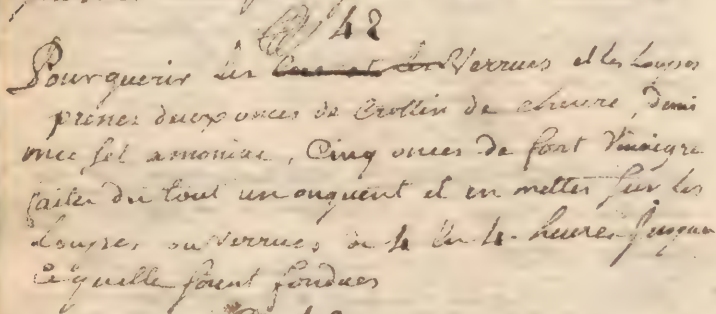 42
Pourguerir les Verrues et les loupes
prenes deux onces de Crottin de chevre, demi
once sel amoniac, Cinq onces de fort Vinaigre
faites du tout un onguent et en mettes sur les
Loupes ou verrues de 4 en 4 heures Jusqua
Ce quelle soient fondues